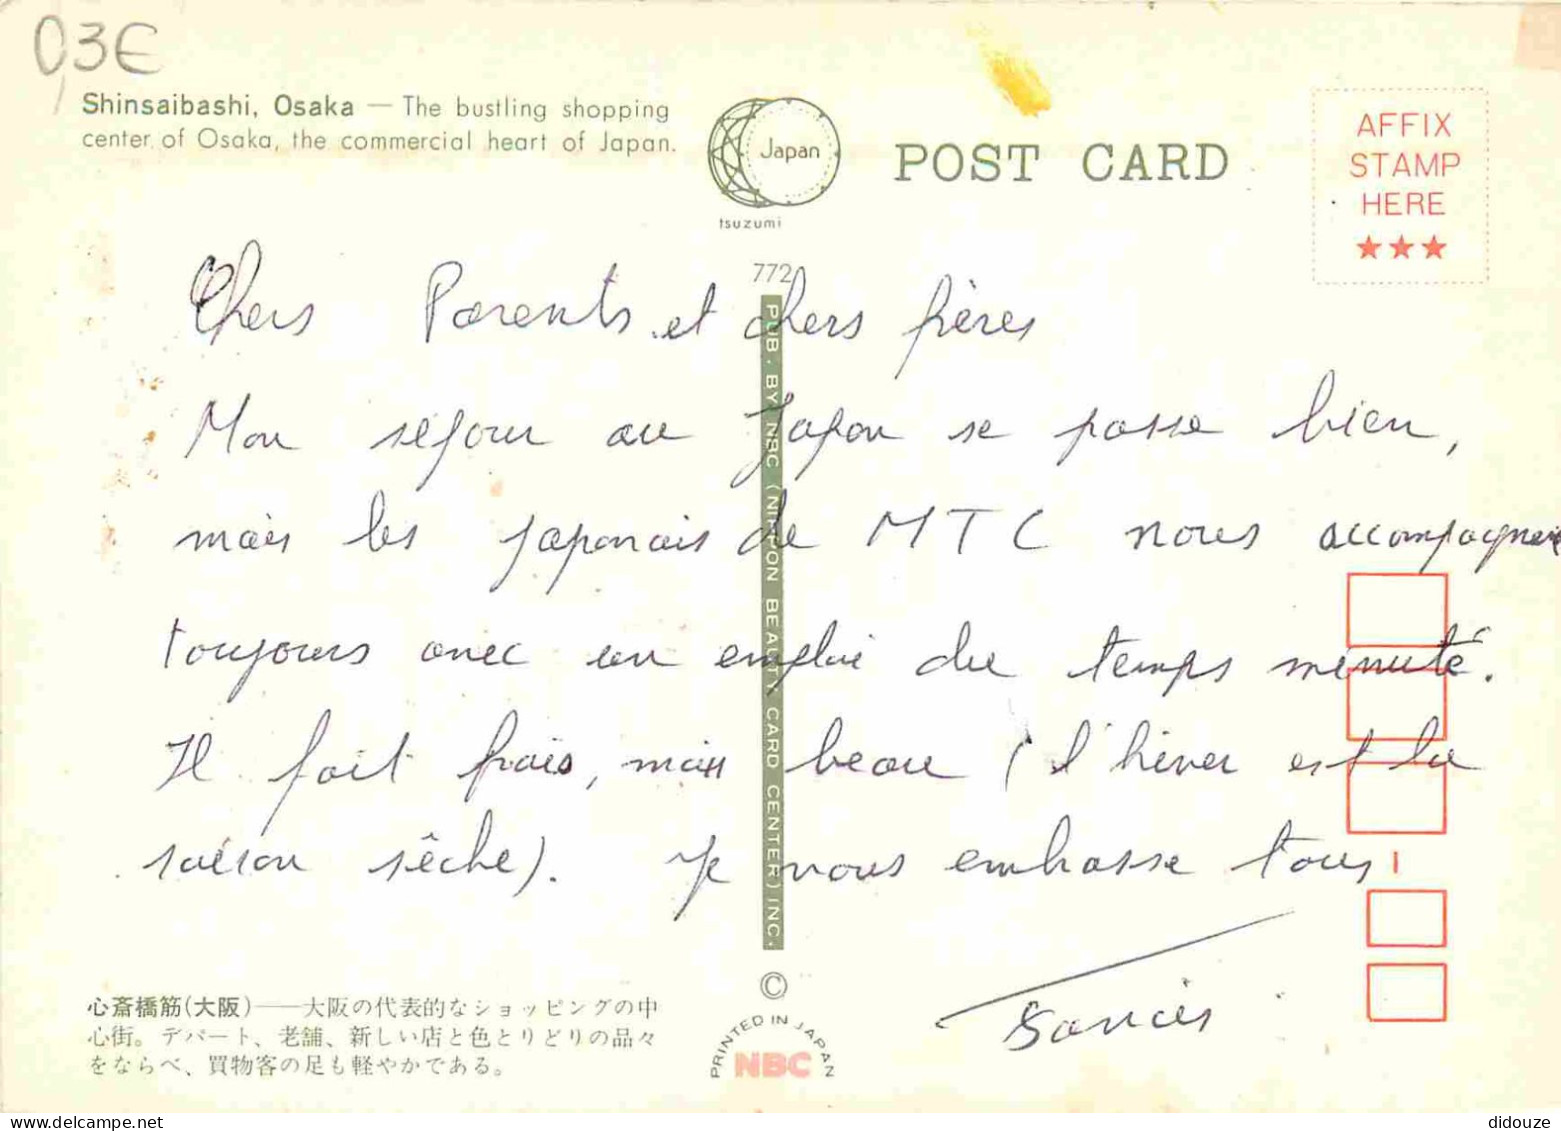 0,3€
Shinsaibashi, Osaka — The bustling shopping
center of Osaka, the commercial heart of Japan.
Japan
tsuzumi
POST CARD
AFFIX
STAMP
HERE
★★★
772
PUB. BY NBC (NIPPON BEAUTY CARD CENTER) INC.
Chers Parents et chers frères
Mon séjour au Japon se passe bien,
mais les japonais de MTC nous accompagnent
toujours avec un emploi du temps minuté.
Il fait frais, mais beau (l'hiver est la
saison sèche). Je vous embrasse tous
心斎橋筋(大阪)——大阪の代表的なショッピングの中
心街。デパート、老舗、新しい店と色とりどりの品々
をならべ、買物客の足も軽やかである。
©
PRINTED IN JAPAN
NBC
didouze
delcampe.net